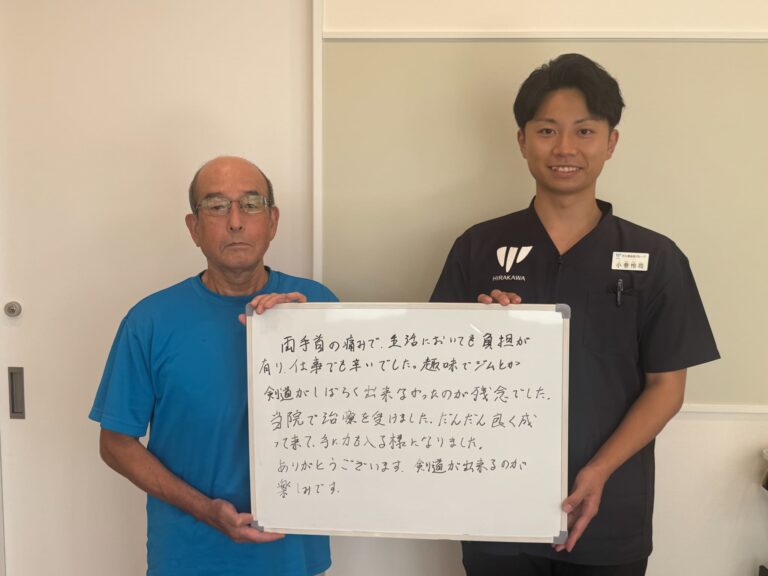 HIRAKAWA
両手首の痛みで、生活においても負担が
有り、仕事でも辛いでした。趣味でジムとか
剣道がしばらく出来なかったのが残念でした。
当院で治療を受けました、だんだん良く成
って来て、手に力も入る様になりました。
ありがとうございます、剣道が出来るのが
楽しみです。